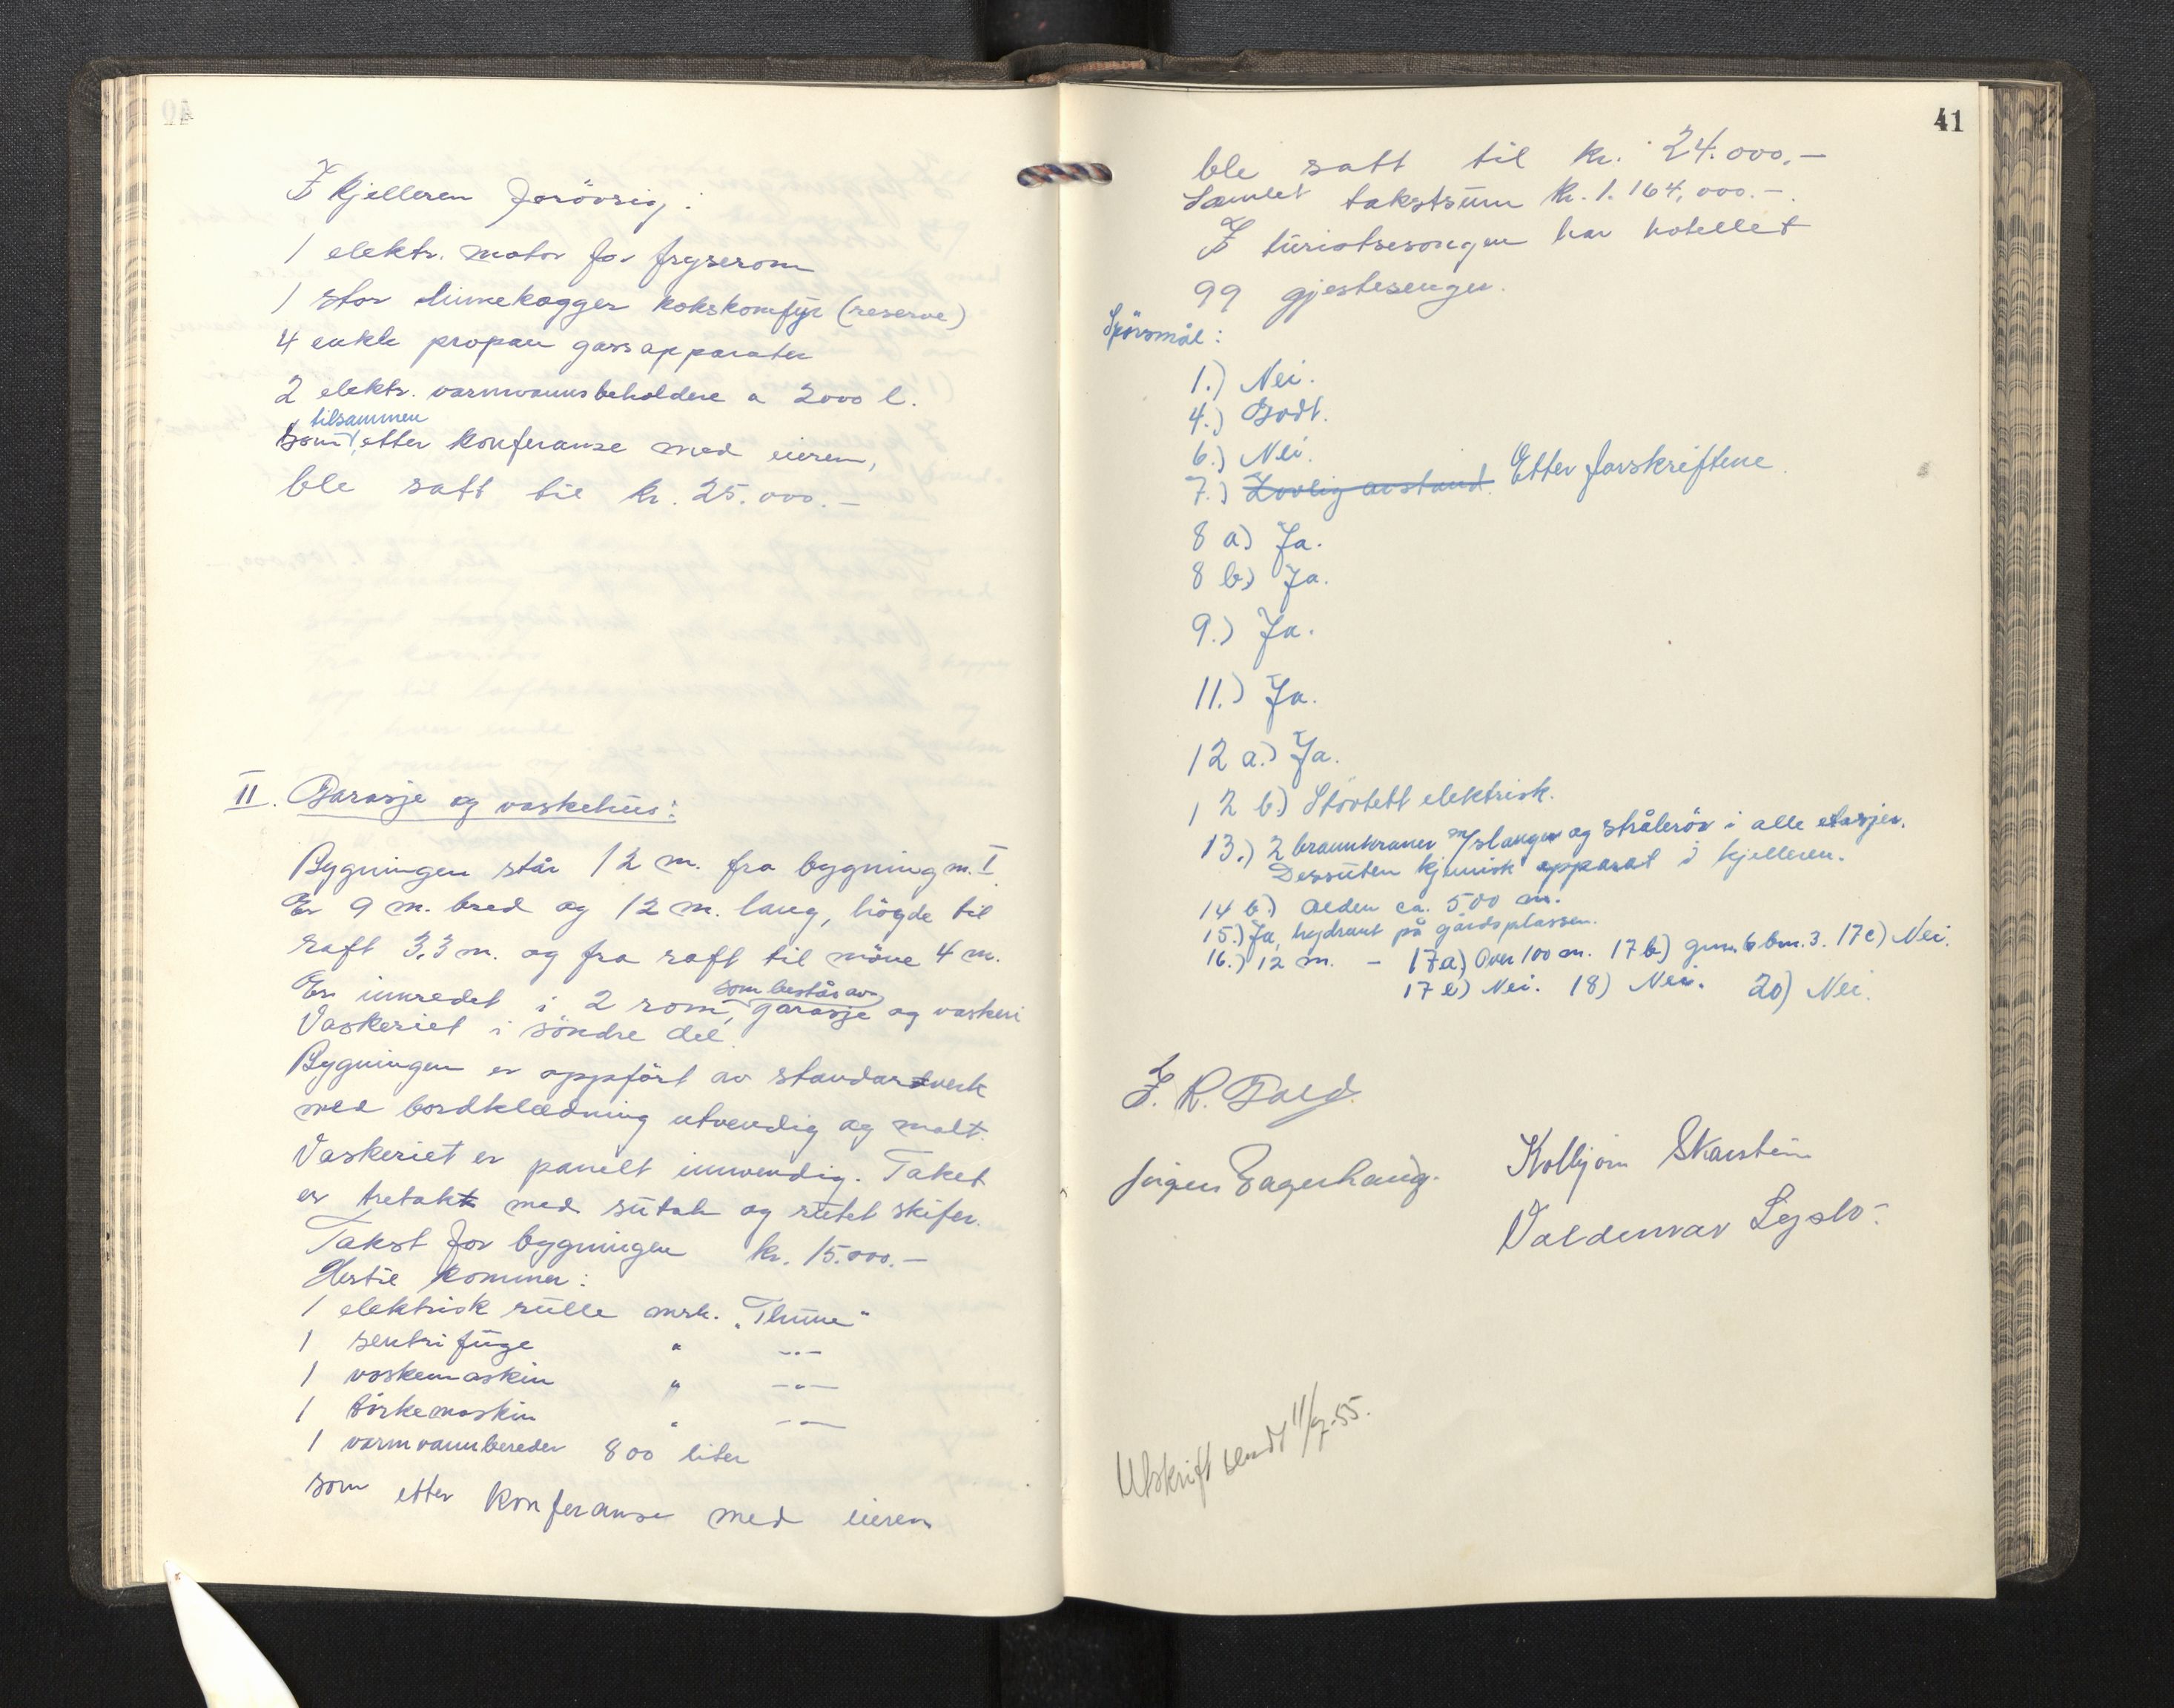 I kjelleren forövrig:
1 elektr. motor for fryserom
1 stor kokskomfyr (reserve)
4 enkle propan gassapparater
2 elektr. varmvannsbeholdere a 2000 l.
tilsammen
som, etter konferanse med eieren,
ble satt til kr. 25.000.-
II. Garasje og vaskehus:
Bygningen står 12 m. fra bygning m. I
Er 9 m. bred og 12 m. lang, högde til
raft 3,3 m. og fra raft til möne 4 m.
som består av
Er innredet i 2 rom, garasje og vaskeri
Vaskeriet i söndre del.
Bygningen er oppfört av standardverk
med bordklædning utvendig og malt.
Vaskeriet er panelt innvendig. Taket
er tretakt med sutak og rutet skifer.
Takst for bygningen kr. 15.000.-
Hertil kommer:
1 elektrisk rulle mrk. "Thune"
1 sentrifuge " -"-
1 vaskemaskin " -"-
1 törkemaskin " -"-
1 varmvannbereder 800 liter
som etter konferanse med eieren
41
ble satt til kr. 24.000.-
Samlet takstsum kr. 1.164,000.-.
I turistsesongen har hotellet
99 gjestesenger.
Spörsmål:
1.) Nei.
4.) Godt.
6.) Nei.
7.) Lovlig avstand. Etter forskriftene.
8 a) Ja.
8 b) Ja.
9.) Ja.
11.) Ja.
12 a.) Ja.
12 b.) Stövtett elektrisk.
13.) 2 brannkraner m/slanger og strålerör i alle etasjer.
Dessuten kjemisk apparat i kjelleren.
14 b.) Alden ca. 500 m.
15.) Ja, hydrant på gårdsplassen.
16.) 12 m. - 17a) Over 100 m. 17 b) 6 bm. 3. 17c) Nei.
17 e) Nei. 18) Nei. 20) Nei.
Kolbjörn Skarstein
Jörgen
Valdemar
Utskrift sendt 11/7-55.